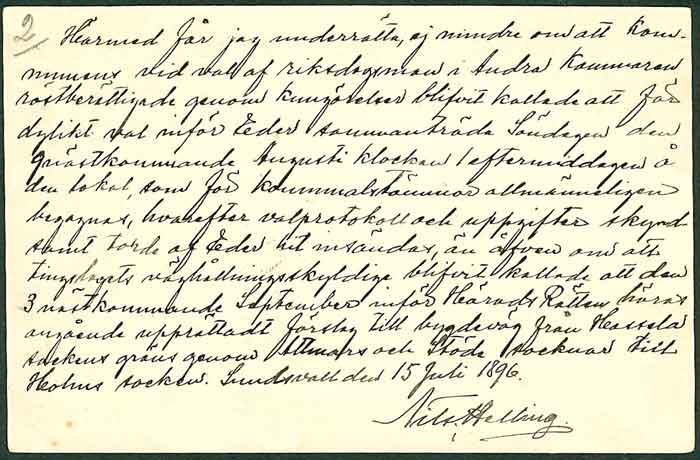 2
Härmed får jag underrätta, ej mindre om att kom-
munens vid val af riksdagsman i Andra Kammaren
röstberättigade genom kungörelser blifvit kallade att för
dylikt val inför Eder sammanträda Söndagen den
9 nästkommande Augusti klockan 1 eftermiddagen å
den lokal, som för kommunalstämmor allmänneligen
begagnas, hvarefter valprotokoll och uppgifter skynd-
samt torde af Eder hit insändas, än äfven om att
tingslagets väghållningsskyldige blifvit kallade att den
3 nästkommande September inför Härads Rätten höras
angående upprättadt förslag till bygdeväg från Hassela
sockens gräns genom Attmars och Stöde socknar till
Holms socken. Sundsvall den 15 Juli 1896.
Nils Hellbing.